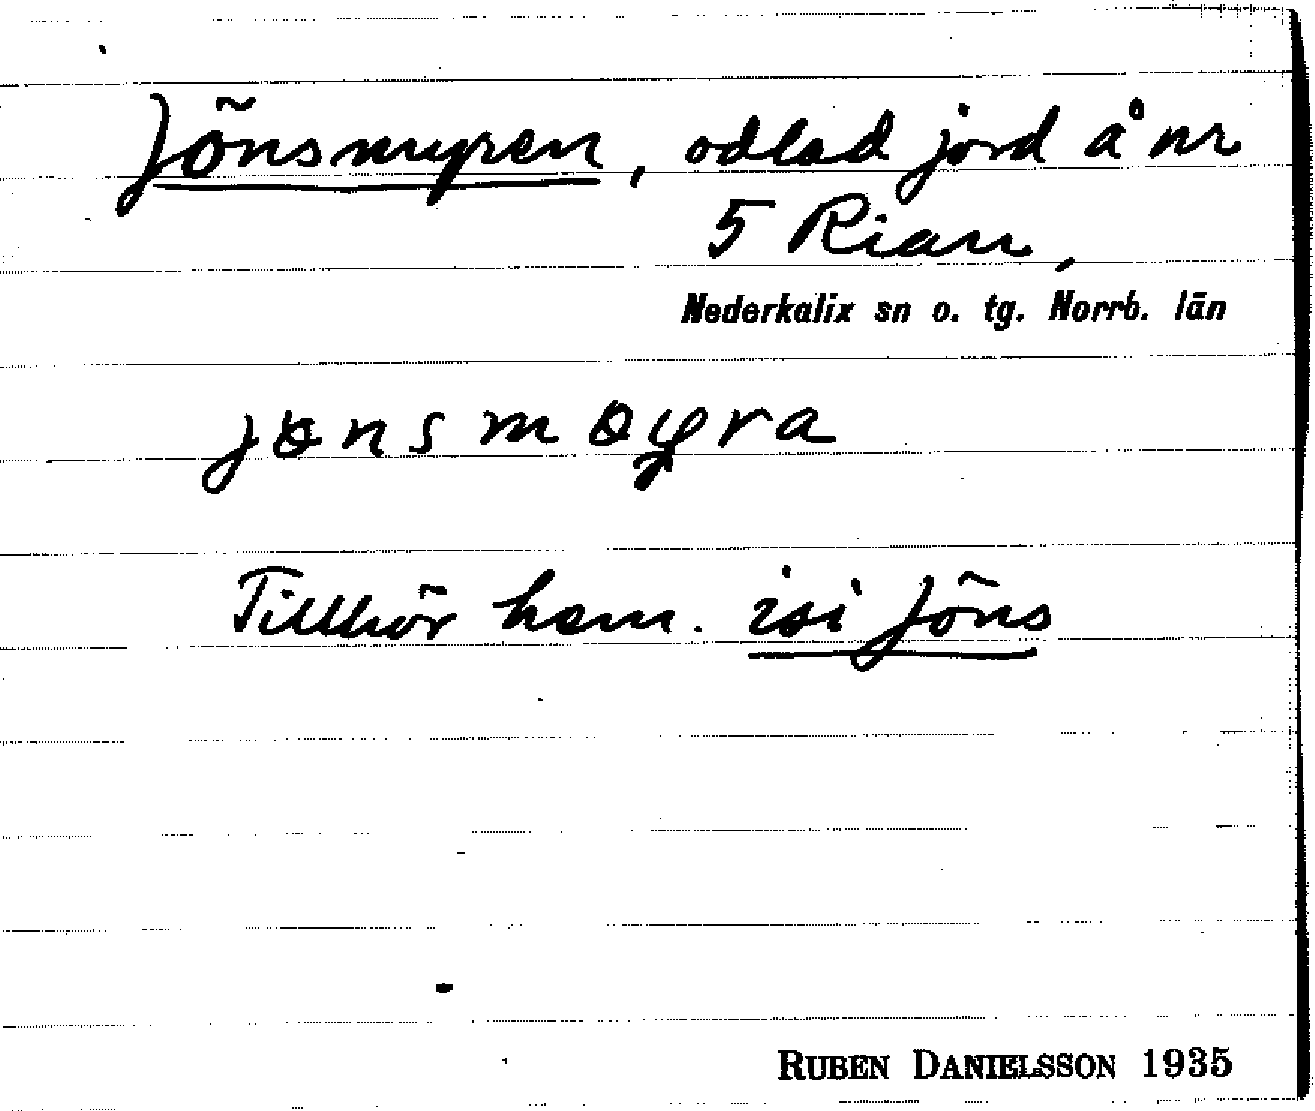 Jönsmyren, odlad jord å nr
5 Rian,
Nederkalix sn o. tg. Norrb. län
jɵnsmɵyra
Tillhör hem. isi Jöns
RUBEN DANIELSSON 1935